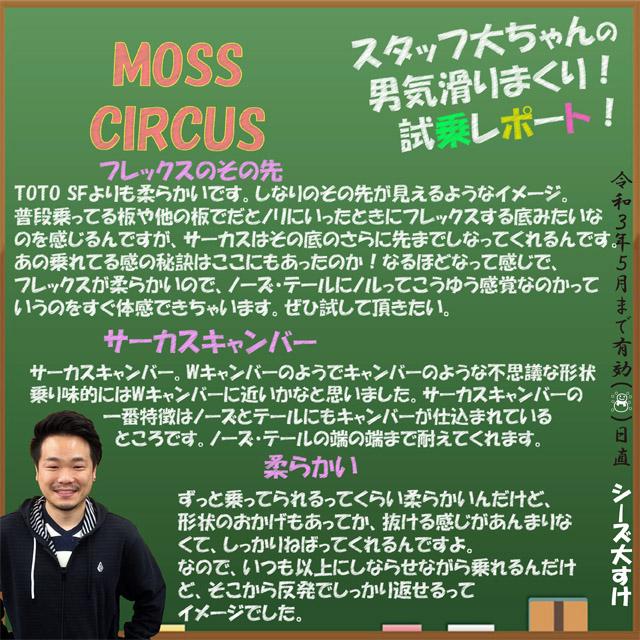 MOSS
CIRCUS
スタッフ大ちゃんの
男気滑りまくり!
試乗レポート!
フレックスのその先
TOTO SFよりも柔らかいです。しなりのその先が見えるようなイメージ。
普段乗ってる板や他の板でだとノリにいったときにフレックスする底みたいな
のを感じるんですが、サーカスはその底のさらに先までしなってくれるんです。
あの乗れてる感の秘訣はここにもあったのか!なるほどなって感じで、
フレックスが柔らかいので、ノーズ・テールにノルってこうゆう感覚なのかって
いうのをすぐ体感できちゃいます。ぜひ試して頂きたい。
サーカスキャンバー
サーカスキャンバー。Wキャンバーのようでキャンバーのような不思議な形状
乗り味的にはWキャンバーに近いかなと思いました。サーカスキャンバーの
一番特徴はノーズとテールにもキャンバーが仕込まれている
ところです。ノーズ・テールの端の端まで耐えてくれます。
柔らかい
ずっと乗ってられるってくらい柔らかいんだけど、
形状のおかげもあってか、抜ける感じがあんまりな
くて、しっかりねばってくれるんですよ。
なので、いつも以上にしならせながら乗れるんだけ
ど、そこから反発でしっかり返せるって
イメージでした。
令和3年5月まで有効()日直
シーズ大すけ